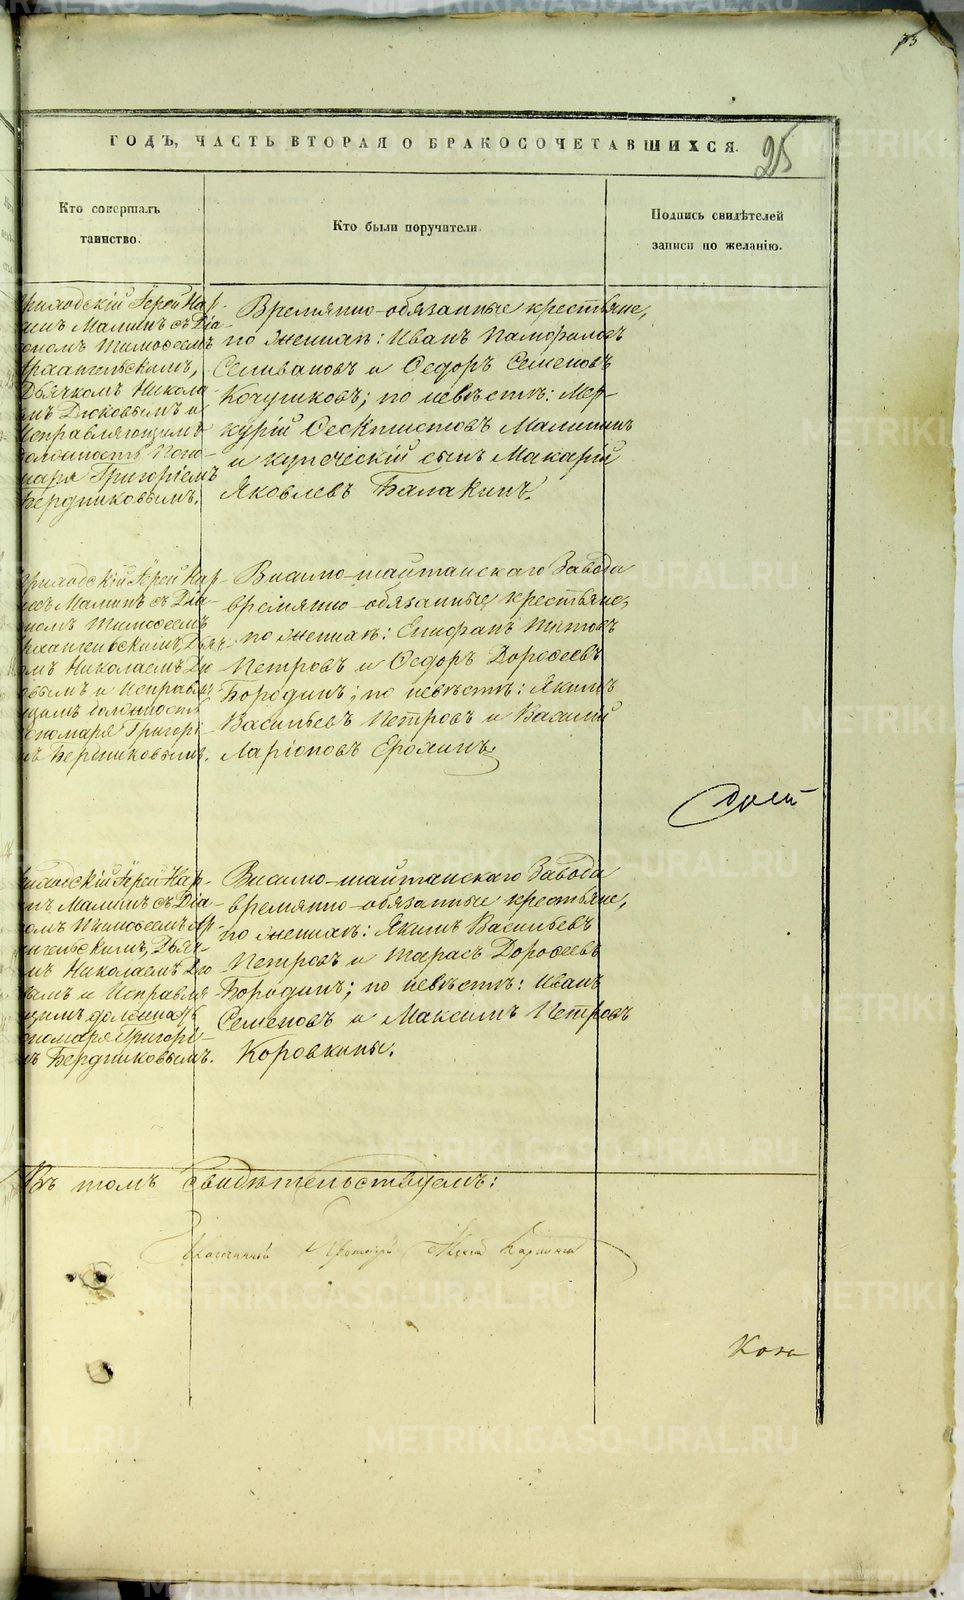 33
25
ГОДЪ, ЧАСТЬ ВТОРАЯ О БРАКОСОЧЕТАВШИХСЯ.
Кто совершалъ
таинство.
Кто были поручители.
Подпись свидѣтелей
записи по желанію.
приходскій Іерей Кар-
Малинъ съ Діа-
кономъ Тимофеемъ
Архангельскимъ,
Дьячкомъ Никола-
емъ Дюковымъ и
Исправляющимъ
должность Поно-
маря Григоріемъ
Бердниковымъ.
Времянно-обязанные крестьяне,
по женихѣ: Иванъ Памфиловъ
Селивановъ и Ѳедоръ Семеновъ
Кочушковъ; по невѣстѣ: Мер-
курій Ѳеоктистовъ Малининъ
и купеческій сынъ Макарій
Яковлевъ Балакинъ.
приходскій Іерей Кар-
Малинъ съ Діа-
кономъ Тимофеемъ
Архангельскимъ, Дьяч-
комъ Николаемъ Дю-
ковымъ и Исправля-
ющимъ должность
Пономаря Григорі-
емъ Бердниковымъ.
Висимо-шайтанскаго Завода
времянно-обязанные крестьяне,
по женихѣ: Епифанъ Титовъ
Петровъ и Ѳедоръ Дорофеевъ
Бородинъ; по невѣстѣ: Якимъ
Васильевъ Петровъ и Василій
Ларіоновъ Ерохинъ.
приходскій Іерей Кар-
Малинъ съ Діа-
кономъ Тимофеемъ Ар-
хангельскимъ, Дьяч-
комъ Николаемъ Дю-
ковымъ и Исправля-
ющимъ должность
Пономаря Григорі-
емъ Бердниковымъ.
Висимо-шайтанскаго Завода
времянно-обязанные крестьяне,
по женихѣ: Якимъ Васильевъ
Петровъ и Тарасъ Дорофеевъ
Бородинъ; по невѣстѣ: Иванъ
Семеновъ и Максимъ Петровъ
Коровкины.
Въ томъ свидѣтельствуемъ:
METRIKI.GASO-URAL.RU